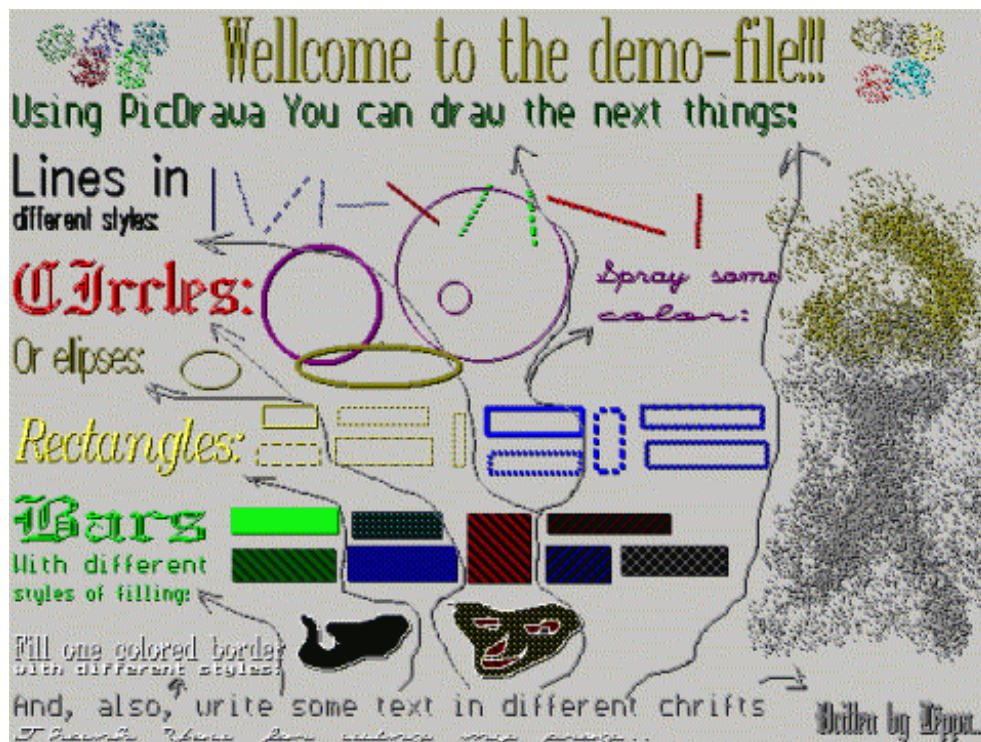 Wellcome to the demo-file!!!
Using PicDrawa You can draw the next things:
Lines in
different styles:
CIrcles:
Spray some
color:
Or elipses:
Rectangles:
Bars
With different
styles of filling:
Fill one colored border
with different styles:
And, also, write some text in different chrifts
Thank You for using my prog...
by